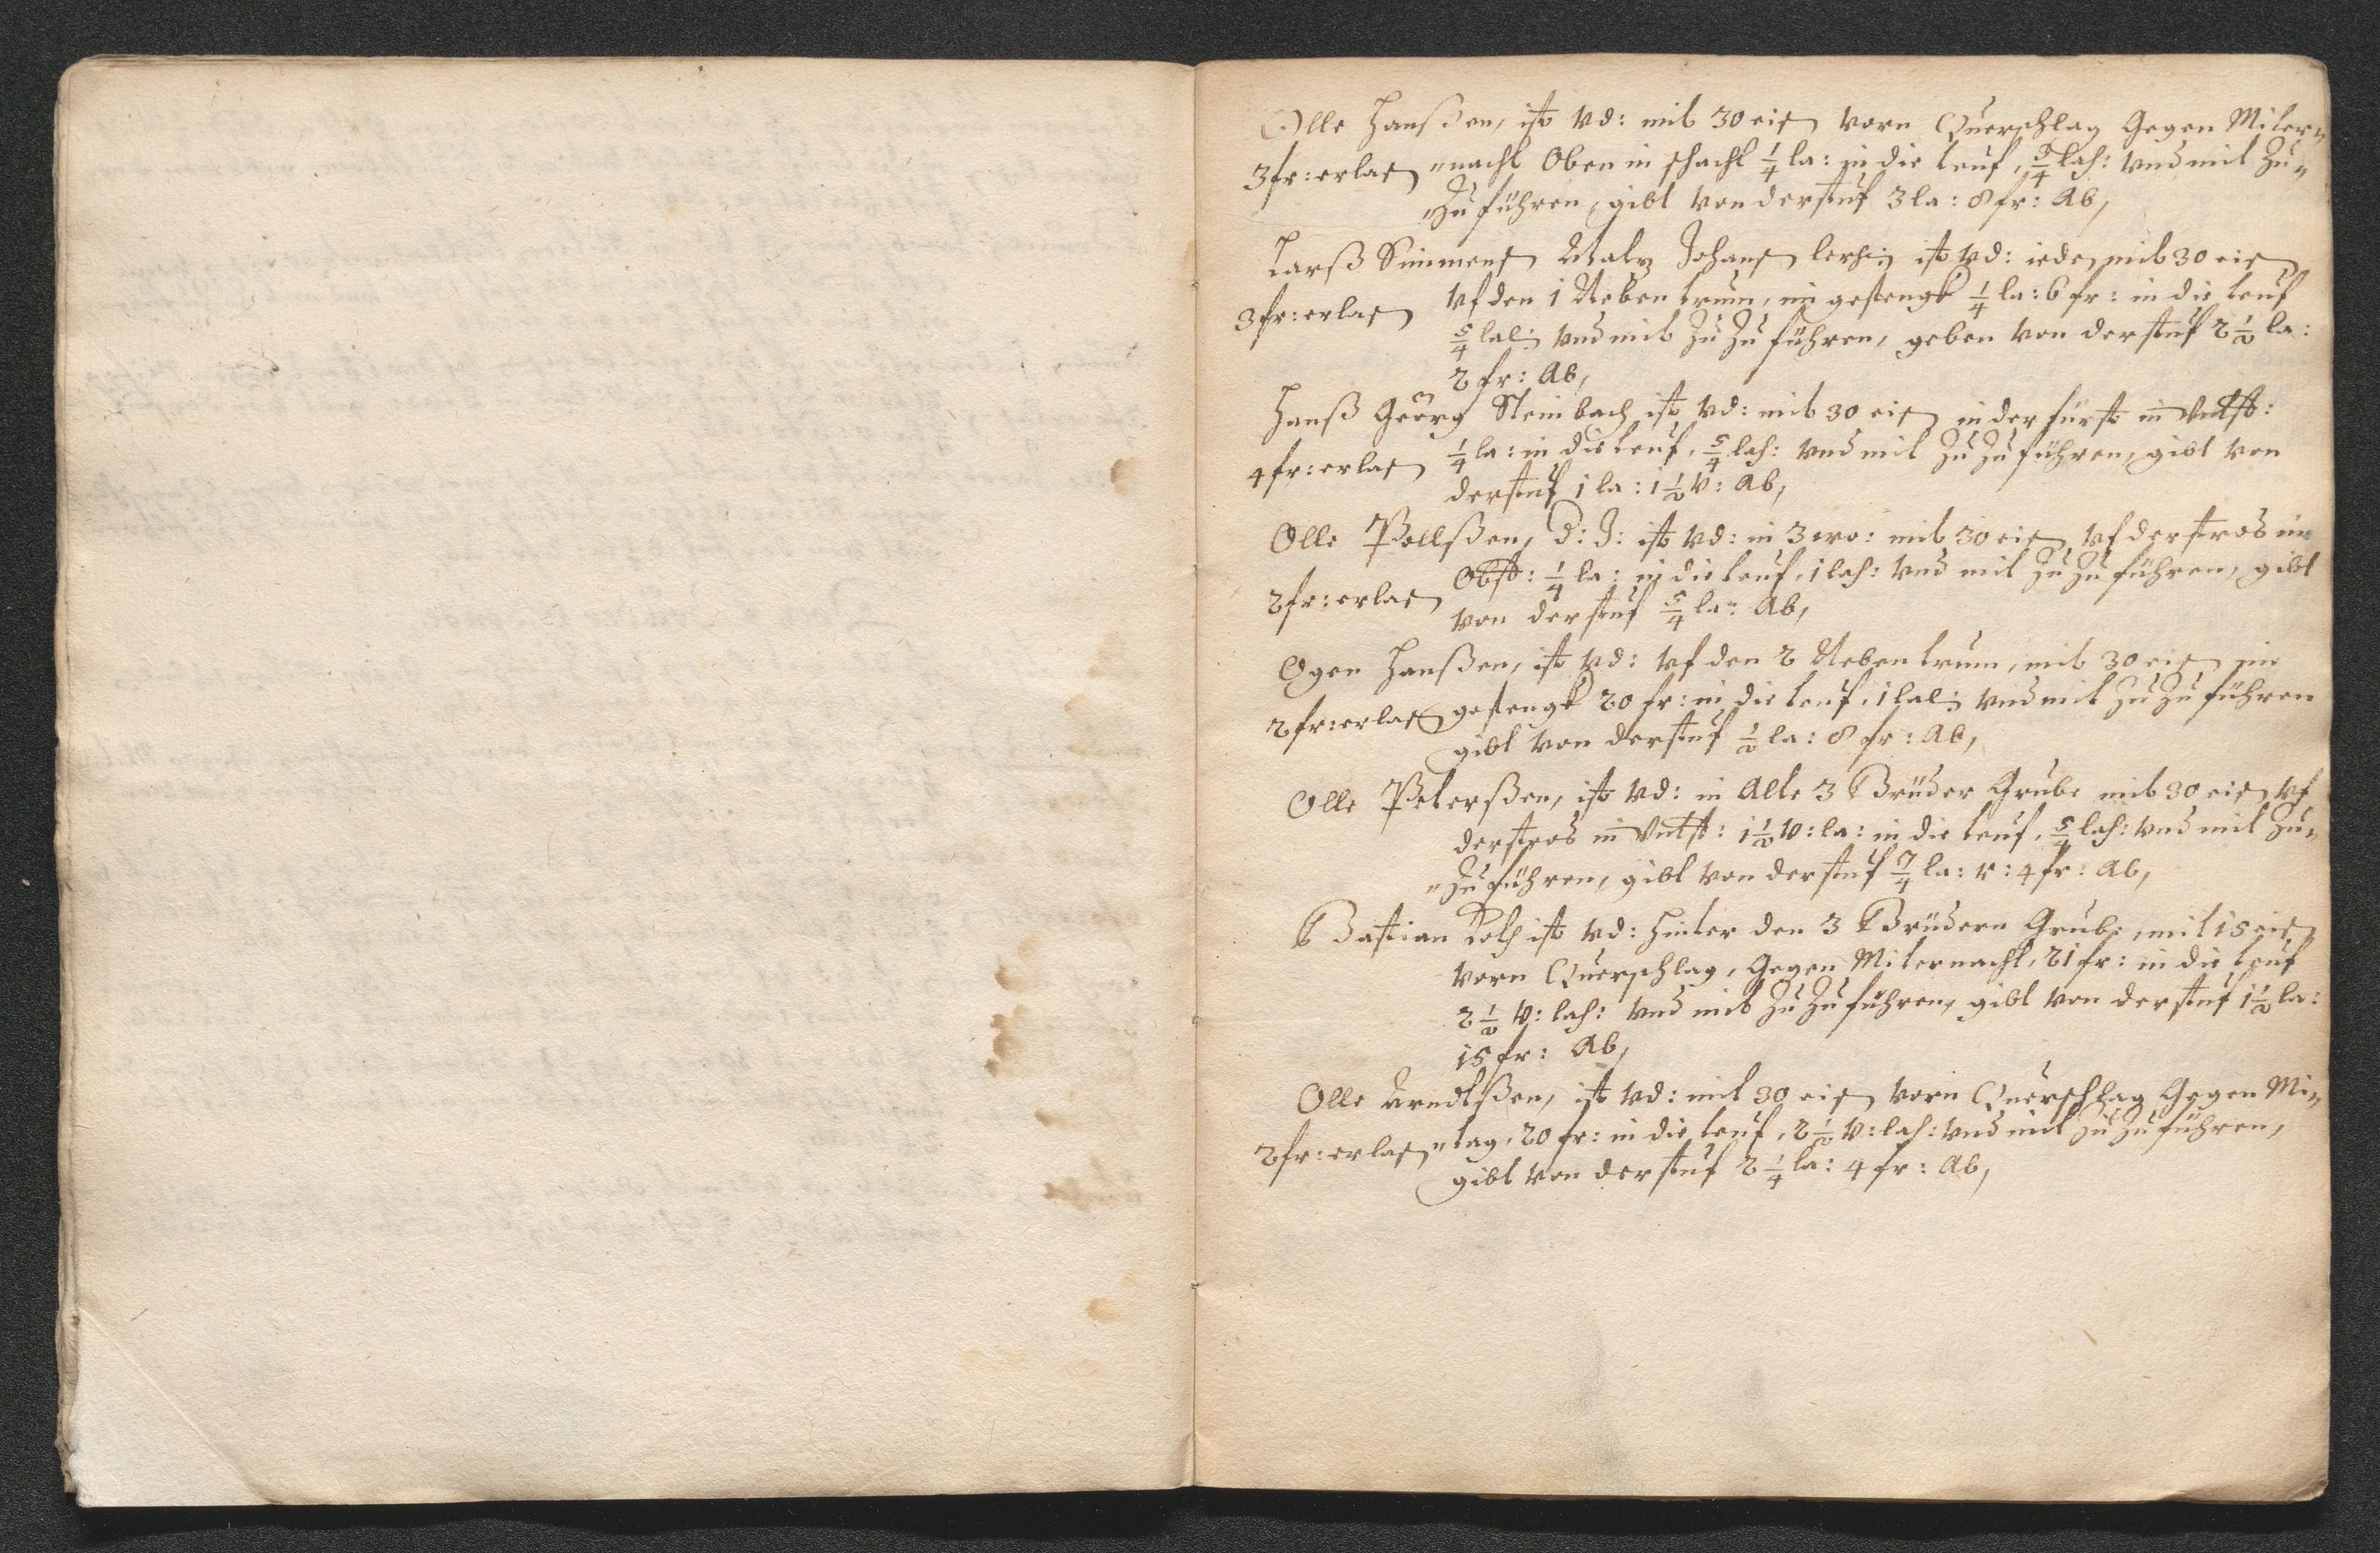 Olle Hanßen, ist vd: mit 30 eis vorn Querschlag Gegen Miter„
3 fr: erlas „nacht Oben in schacht 1/4 la: in die teuf, 3/4 lach: vnd mit Zu„
„Zu führen, gibt von der stuf 3 la: 8 fr: Ab,
Larß Simmens Johans ist vd: ieder mit 30 eis
3 fr: erlas vf den 1 Neben trum, im gesengk 1/4 la: 6 fr: in die teuf
5/4 lach: vnd mit Zu Zu führen, geben von der stuf 2 1/2 la:
2 fr: Ab,
Hanß Georg Steinbach ist vd: mit 30 eis in der fürst in
4 fr: erlas 1/4 la: in die teuf, 5/4 lach: vnd mit Zu Zu führen, gibt von
der stuf 1 la: 1 1/2 v: Ab,
Olle Pollßen, D: J: ist vd: in 3 wo: mit 30 eis vf der stros im
2 fr: erlas Obst: 1/4 la: in die teuf, 1 lach: vnd mit Zu Zu führen, gibt
von der stuf 5/4 la: Ab,
Ogen Hanßen, ist vd: vf den 2 Neben trum, mit 30 eis im
2 fr: erlas gesengk 20 fr: in die teuf, 1 lach: vnd mit Zu Zu führen
gibt von der stuf 1/2 la: 8 fr: Ab,
Olle Peterßen, ist vd: in Alte 3 Brüder Grube mit 30 eis vf
der stros in 1 1/2 v: la: in die teuf, 5/4 lach: vnd mit Zu„
„Zu führen, gibt von der stuf 7/4 la: v: 4 fr: Ab,
Bastian ist vd: hinter den 3 Brüdern Grube, mit 15 eis
vorn Querschlag, Gegen Miternacht, 21 fr: in die teuf
2 1/2 v: lach: vnd mit Zu Zu führen, gibt von der stuf 1 1/2 la:
15 fr: Ab,
Olle Arndtßen, ist vd: mit 30 eis vorn Querschlag Gegen Mi„
2 fr: erlas „tag, 20 fr: in die teuf, 2 1/2 v: lach: vnd mit Zu Zu führen,
gibt von der stuf 2 1/4 la: 4 fr: Ab,